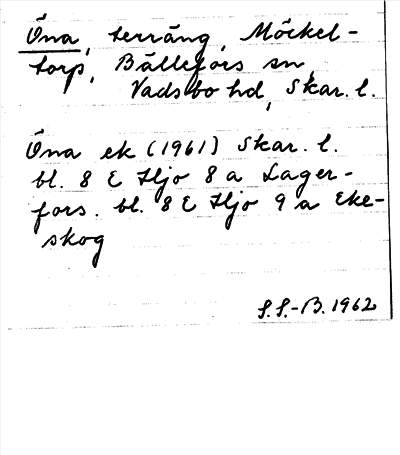 Öna, terräng, Möckel-
torp, Bällefors sn,
Vadsbo hd, Skar. l.
Öna ek (1961) Skar. l.
bl. 8 E Hjo 8 a Lager-
fors. bl. 8 E Hjo 9 a Eke-
skog
S.S.-B. 1962